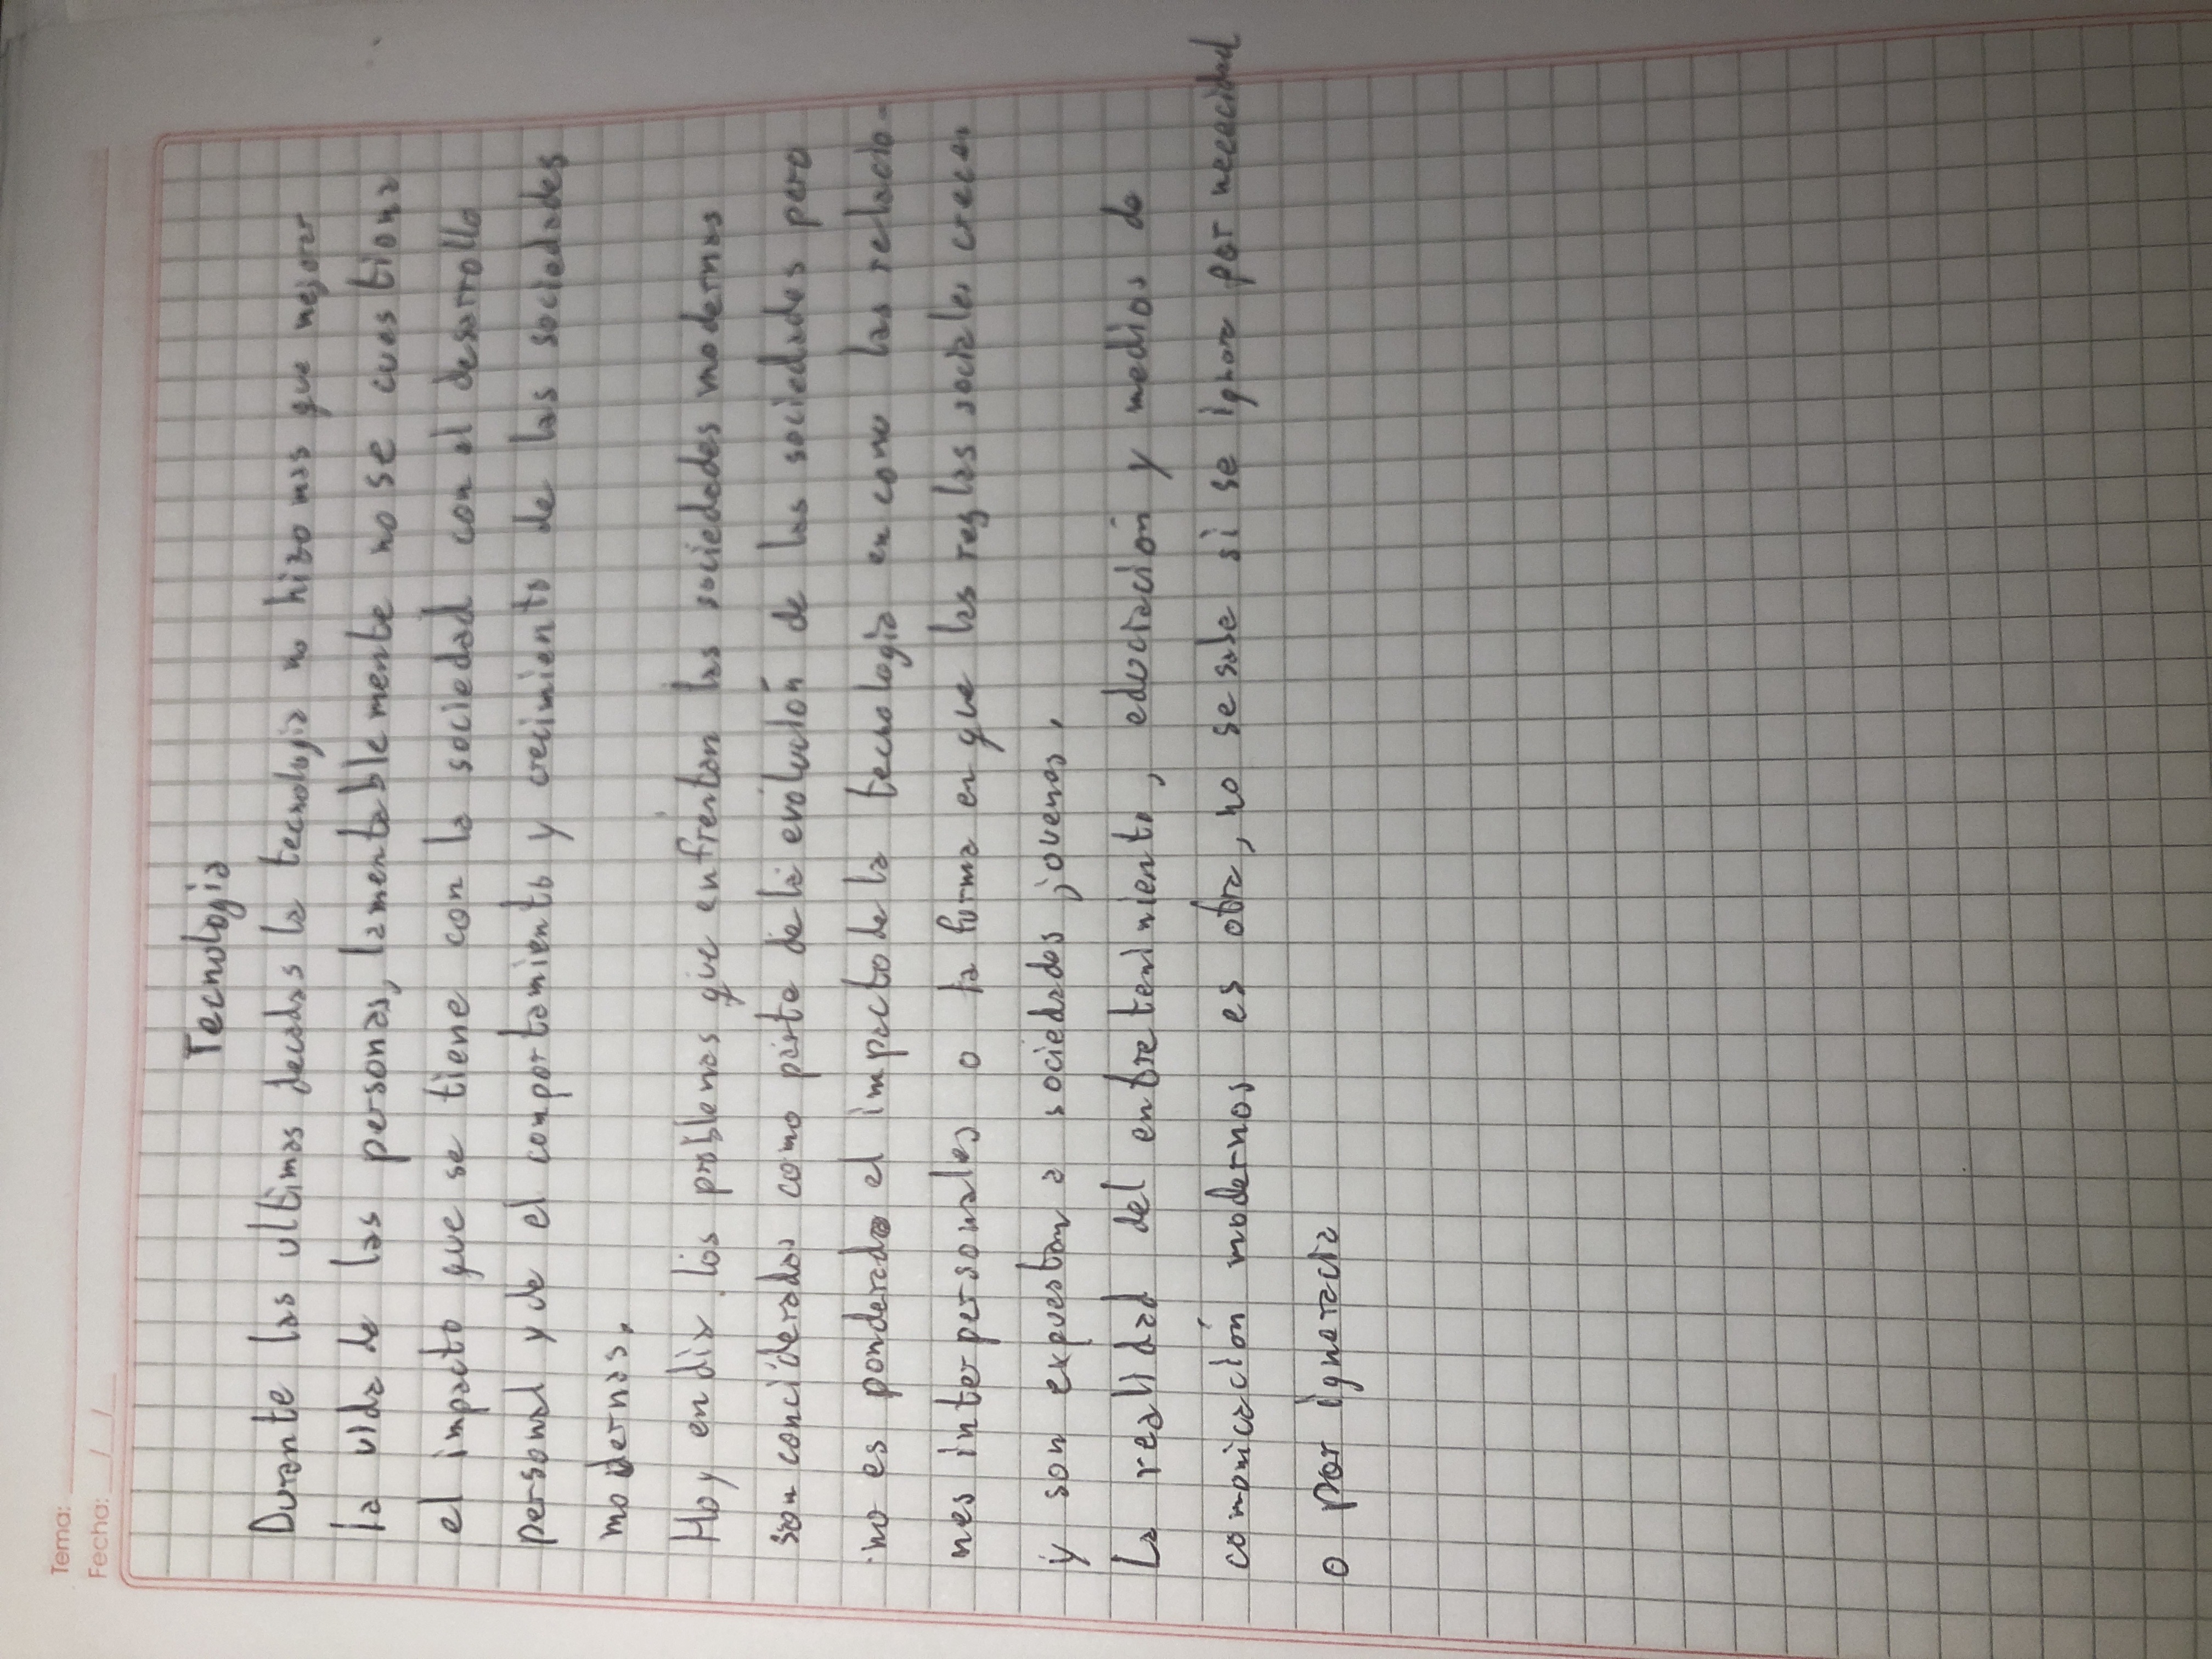 Tema:
Fecha: __/__/__
Tecnologia
Durante las ultimas decadas la tecnologia no hizo mas que mejorar
la vida de las personas, lamentablemente no se cuestiona
el impacto que se tiene con la sociedad con el desarrollo
personal y de el comportamiento y crecimiento de las sociedades
modernas.
Hoy en dia los problemas que enfrentan las sociedades modernas
son conciderados como parte de la evolución de las sociedades pero
no es ponderado el impacto de la tecnologia en como las relacio-
nes interpersonales o la forma en que las reglas sociales crecen
y son expuestan a sociedades jovenes.
La realidad del entretenimiento, educiación y medios de
comonicación modernos es otra, no se sabe si se ignora por nececidad
o por ignoracia